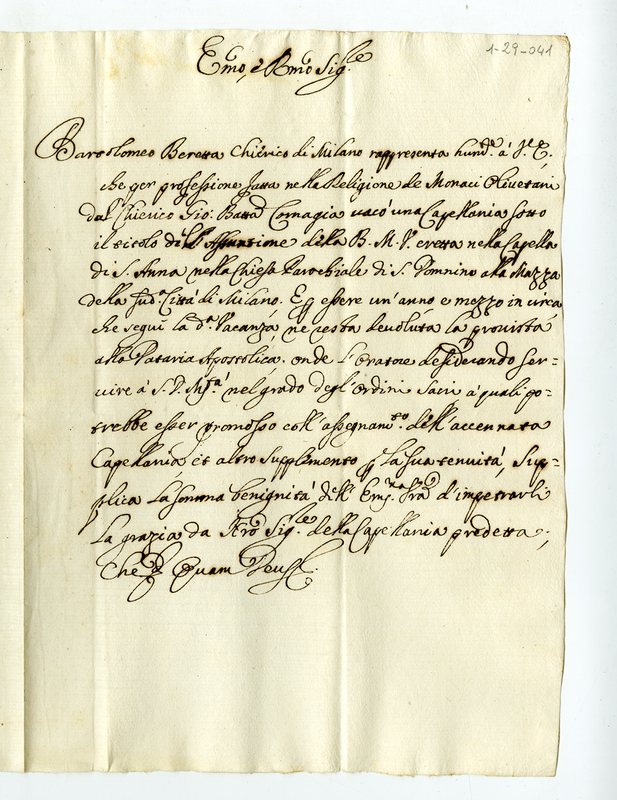 1-29-041
Emo, e Rmo Sig.re
Bartolomeo Beretta Chierico di Milano rappresenta humil.e à V. E.
che per professione fatta nella Religione de Monaci Olivetani
dal Chierico Gio: Batta Cornagia vacò una Capellania sotto
il titolo dell'Assunzione della B. M. V. eretta nella Capella
di S. Anna nella Chiesa Parochiale di S. Donnino alla Mazza
della sud.a Città di Milano. E p essere un'anno e mezzo in circa
che seguì la d.a Vacanza, ne resta devoluta la provista
alla Dataria Apostolica. onde l'Oratore desiderando ser=
vire à S. D. M.tà nel grado degl'Ordini Sacri à quali po=
trebbe esser promosso coll'assegnam.to dell'accennata
Capellania, et altro supplemento p la sua tenuità, sup=
plica la somma benignità dell' Em.za d'impetrarli
la grazia da Sig.re della Capellania predetta.
Che Quam Deus